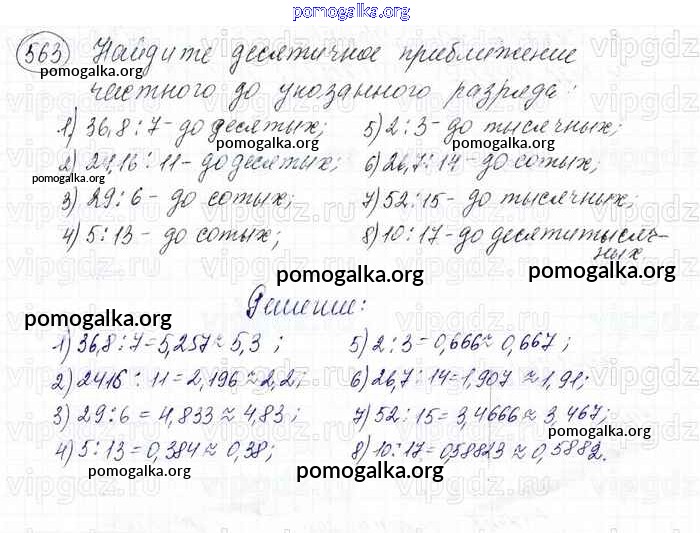 pomogalka.org
563 Найдите десятичное приближение
частного до указанного разряда:
1) 36,8 : 7 - до десятых;
2) 24,16 : 11 - до десятых;
3) 29 : 6 - до сотых;
4) 5 : 13 - до сотых;
5) 2 : 3 - до тысячных;
6) 26,7 : 14 - до сотых;
7) 52 : 15 - до тысячных;
8) 10 : 17 - до десятитысяч-
ных.
Решение:
1) 36,8 : 7 = 5,257 ≈ 5,3 ;
2) 2416 : 11 = 2,196 ≈ 2,2;
3) 29 : 6 = 4,833 ≈ 4,83 ;
4) 5 : 13 = 0,384 ≈ 0,38;
5) 2 : 3 = 0,666 ≈ 0,667 ;
6) 26,7 : 14 = 1,907 ≈ 1,91;
7) 52 : 15 = 3,4666 ≈ 3,467;
8) 10 : 17 = 0,58823 ≈ 0,5882.
pomogalka.org
vipgdz.ru